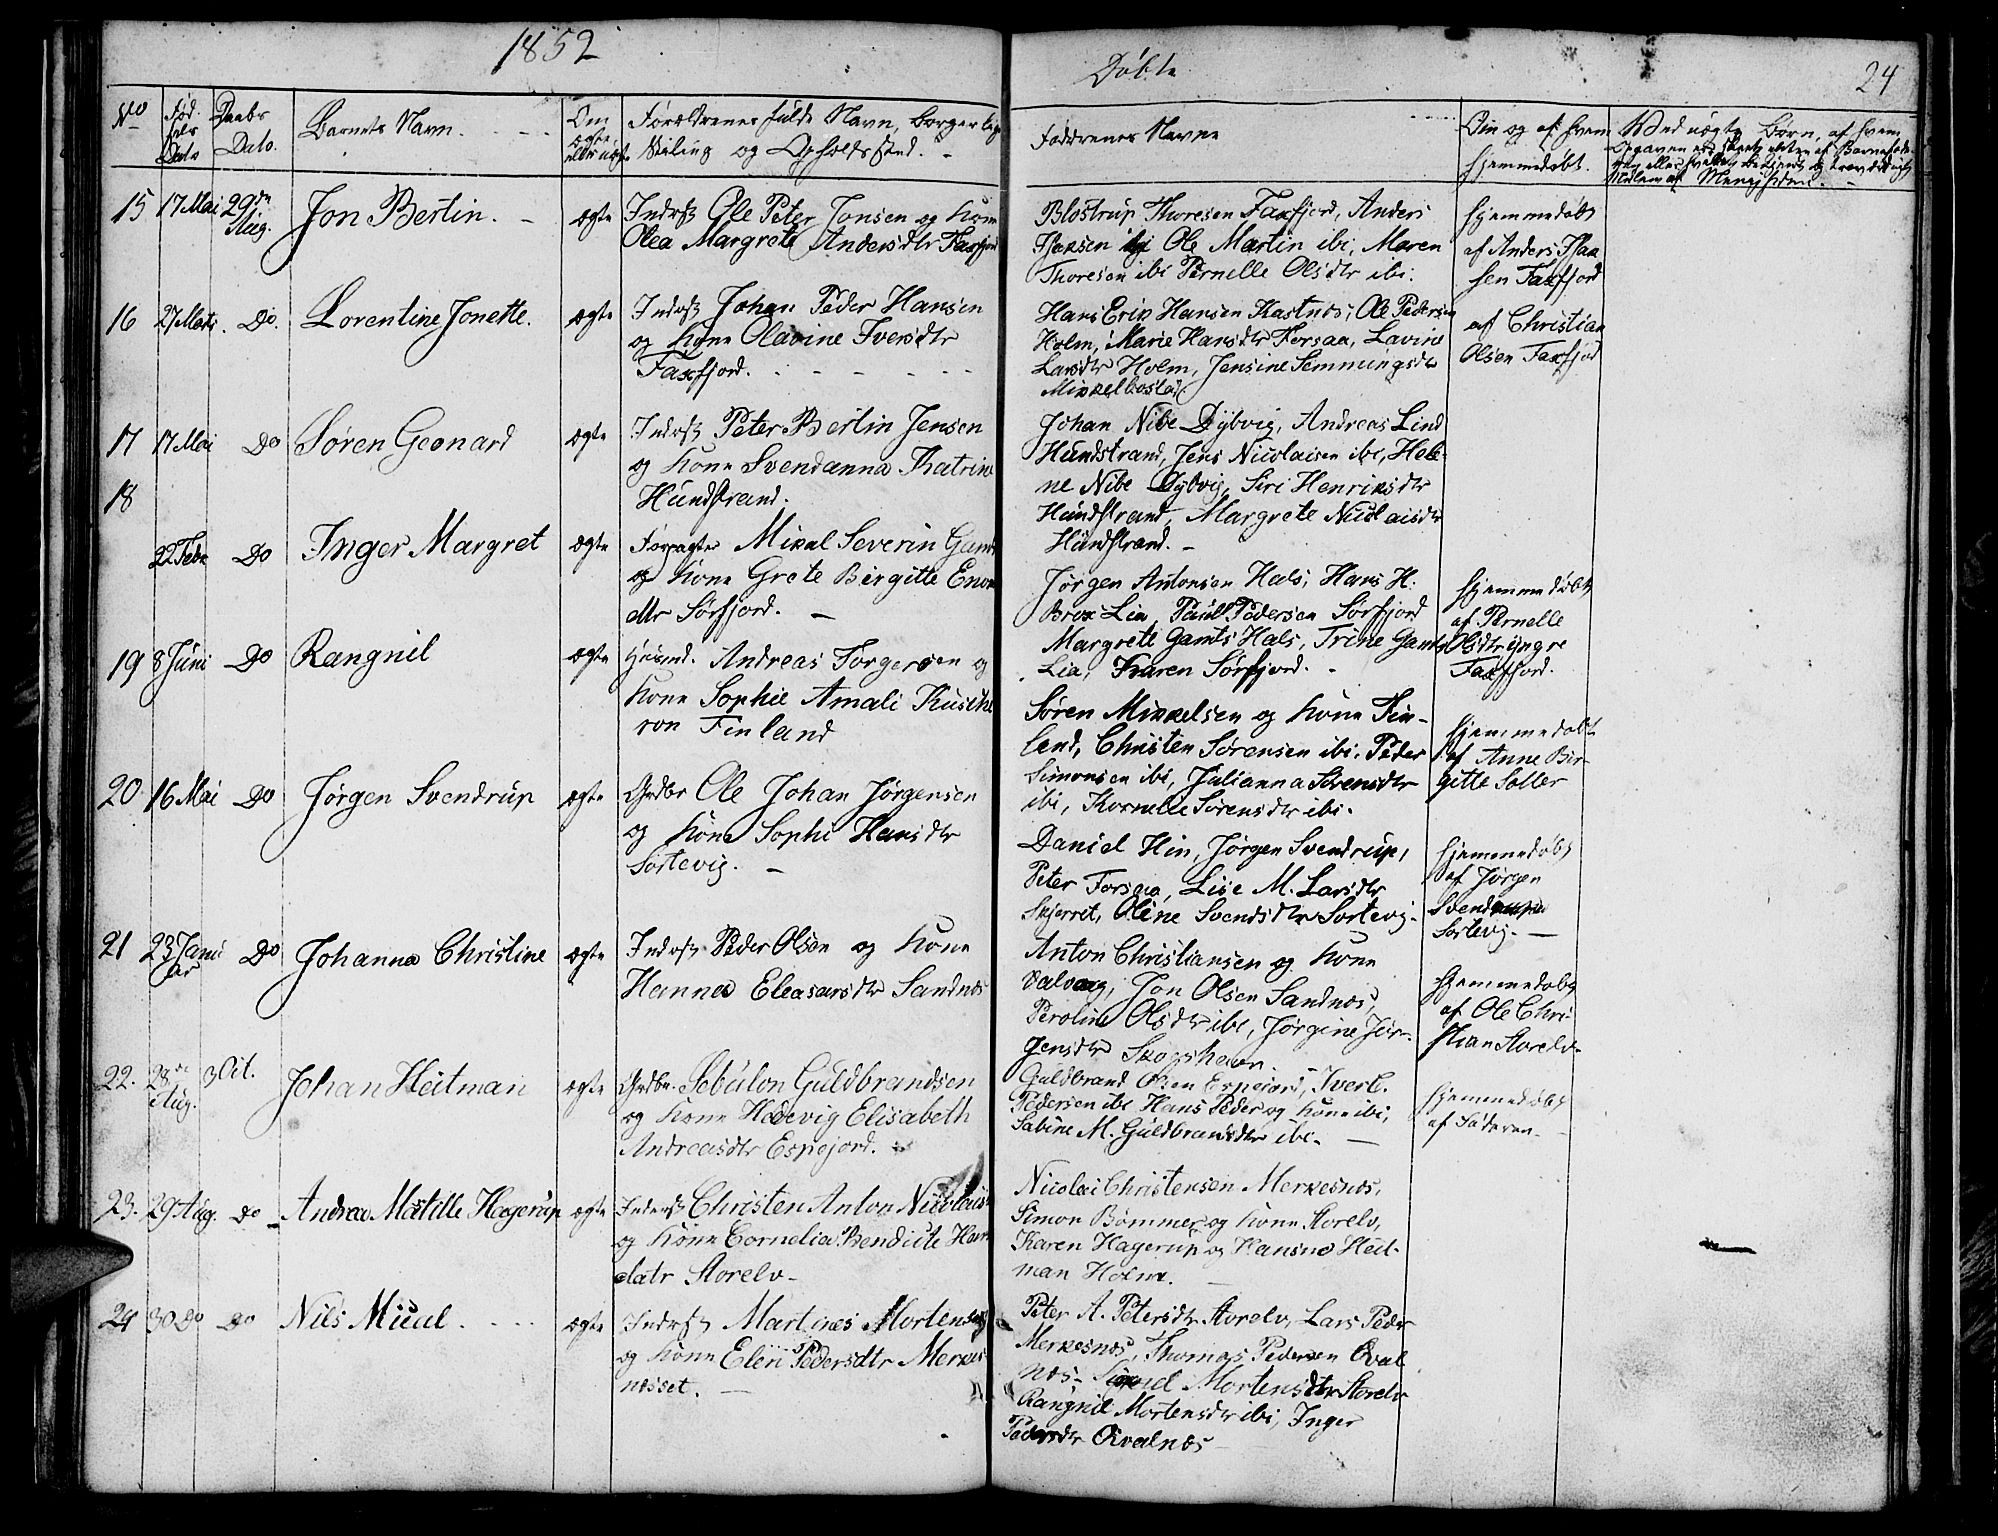 1852
Døbte
24
No
Fød-
sels
Dato
Daabs
Dato.
Barnets Navn.
Om
ægte
eller uægte
Forældrenes fulde Navn, Borgerlige
Stiling og Opholdssted.
Faddrenes Navne
Om og af hvem
hjemmedøbt.
Ved uægte Børn, af hvem
15 17 Mai 29de Aug. Jon Bertin. ægte
Inderst Ole Peter Jonsen og Kone
Olea Margrete Andersdtr Faxfjord
Blostrup Thoresen Faxfjord, Anders
Isaksen ibi Ole Martin ibi, Maren
Thoresen ibi Pernelle Olsdtr ibi.
hjemmedøbt
af Anders Isak
sen Faxfjord
16 27 Marts. Do. Lorentine Jonette. ægte
Inderst Johan Peder Hansen
og Kone Olavine Iversdtr
Faxfjord.
Hans Erik Hansen Kastnes, Ole Pedersen
Holm, Marie Hansdtr Forsaa, Lavine
Larsdtr Holm, Jensine Hemmingsdtr
Mikkelbostad
af Christian
Olsen Faxfjord
17 17 Mai Do Søren Geonard ægte
Inderst Peter Bertin Jensen
og Kone Svendanna Katrine
Hundstrand.
Johan Nibe Dybvig, Andreas Lind
Hundstrand, Jens Nicolaisen ibi, Hele-
ne Nibe Dybvig, Siri Henriksdtr
Hundstrand, Margrete Nicolaisdtr
Hundstrand.
18
22 Febr Do Inger Margret ægte
Forpagter Mikal Severin Gamst
og Kone Grete Birgitte Enoks
dtr Sørfjord.
Jørgen Antonsen Hals, Hans H.
Brox Lia, Paul Pedersen Sørfjord
Margrete Gamts Hals, Trine Gamts
Lia, Karen Sørfjord.
hjemmedøbt
af Pernelle
Olsdtr yngre
Faxfjord.
19 8 Juni Do Rangnil ægte
Husmd. Andreas Torgersen og
Kone Sophie Amali Kusthe
ron Finland
Søren Mikkelsen og Kone Fin-
land, Christen Sørensen ibi, Peder
Simonsen ibi, Julianna Sørensdtr
ibi, Kornelie Sørensdtr ibi.
hjemmedøbt
af Anne Bir-
gitte Soller
20 16 Mai Do Jørgen Svendrup ægte
Grdbr Ole Johan Jørgensen
og Kone Sophi Hansdtr
Sortevig.
Daniel Hin, Jørgen Svendrup,
Peter Forsaa, Lise M. Larsdtr
Skjerret, Oline Svendsdtr Sortevig.
hjemmedøbt
af Jørgen
Svendrup
Sortevig.
21 23 Janu
ar Do Johanna Christine ægte
Inderst Peder Olsen og Kone
Hanna Eleasarsdtr Sandnæs
Anton Christiansen og Kone
Valvaag, Jon Olsen Sandnæs,
Peroline Olsdtr ibi, Jørgine Jør-
gensdtr Skogshavn.
hjemmedøbt
af Ole Chri-
stian Storelv.
22. 28de Aug. 3 Oct. Johan Heitman ægte
Grdbr. Sebulon Guldbrandsen
og Kone Hedevig Elisabeth
Andreasdtr Espejord.
Guldbrand Olsen Espejord, Iver C.
Pedersen ibi Hans Peder og Kone ibi,
Sabine M. Guldbransdtr ibi.
hjemmedøbt
af Faderen
23. 29 Aug. Do Andrea Matille Hagerup ægte
Inderst Christen Anton Nicolais
og Kone Cornelia Bendicte Han
datr Storelv
Nicolai Christensen Merkesnæs,
Simon Bømmer og Kone Storelv,
Karen Hagerup og Hansne Heit-
man Holm.
24 30 Do Do Nils Mical. ægte
Inderst Martines Mortensen
og Kone Elen Pedersdtr Merkes-
næsset.
Peter A. Petersdtr Storelv, Lars Peder
Merkesnæs, Thomas Pedersen Qval
næs, Sigrid Mortensdtr Storelv
Rangnil Mortensdtr ibi, Inger
Pedersdtr Qvalnæs